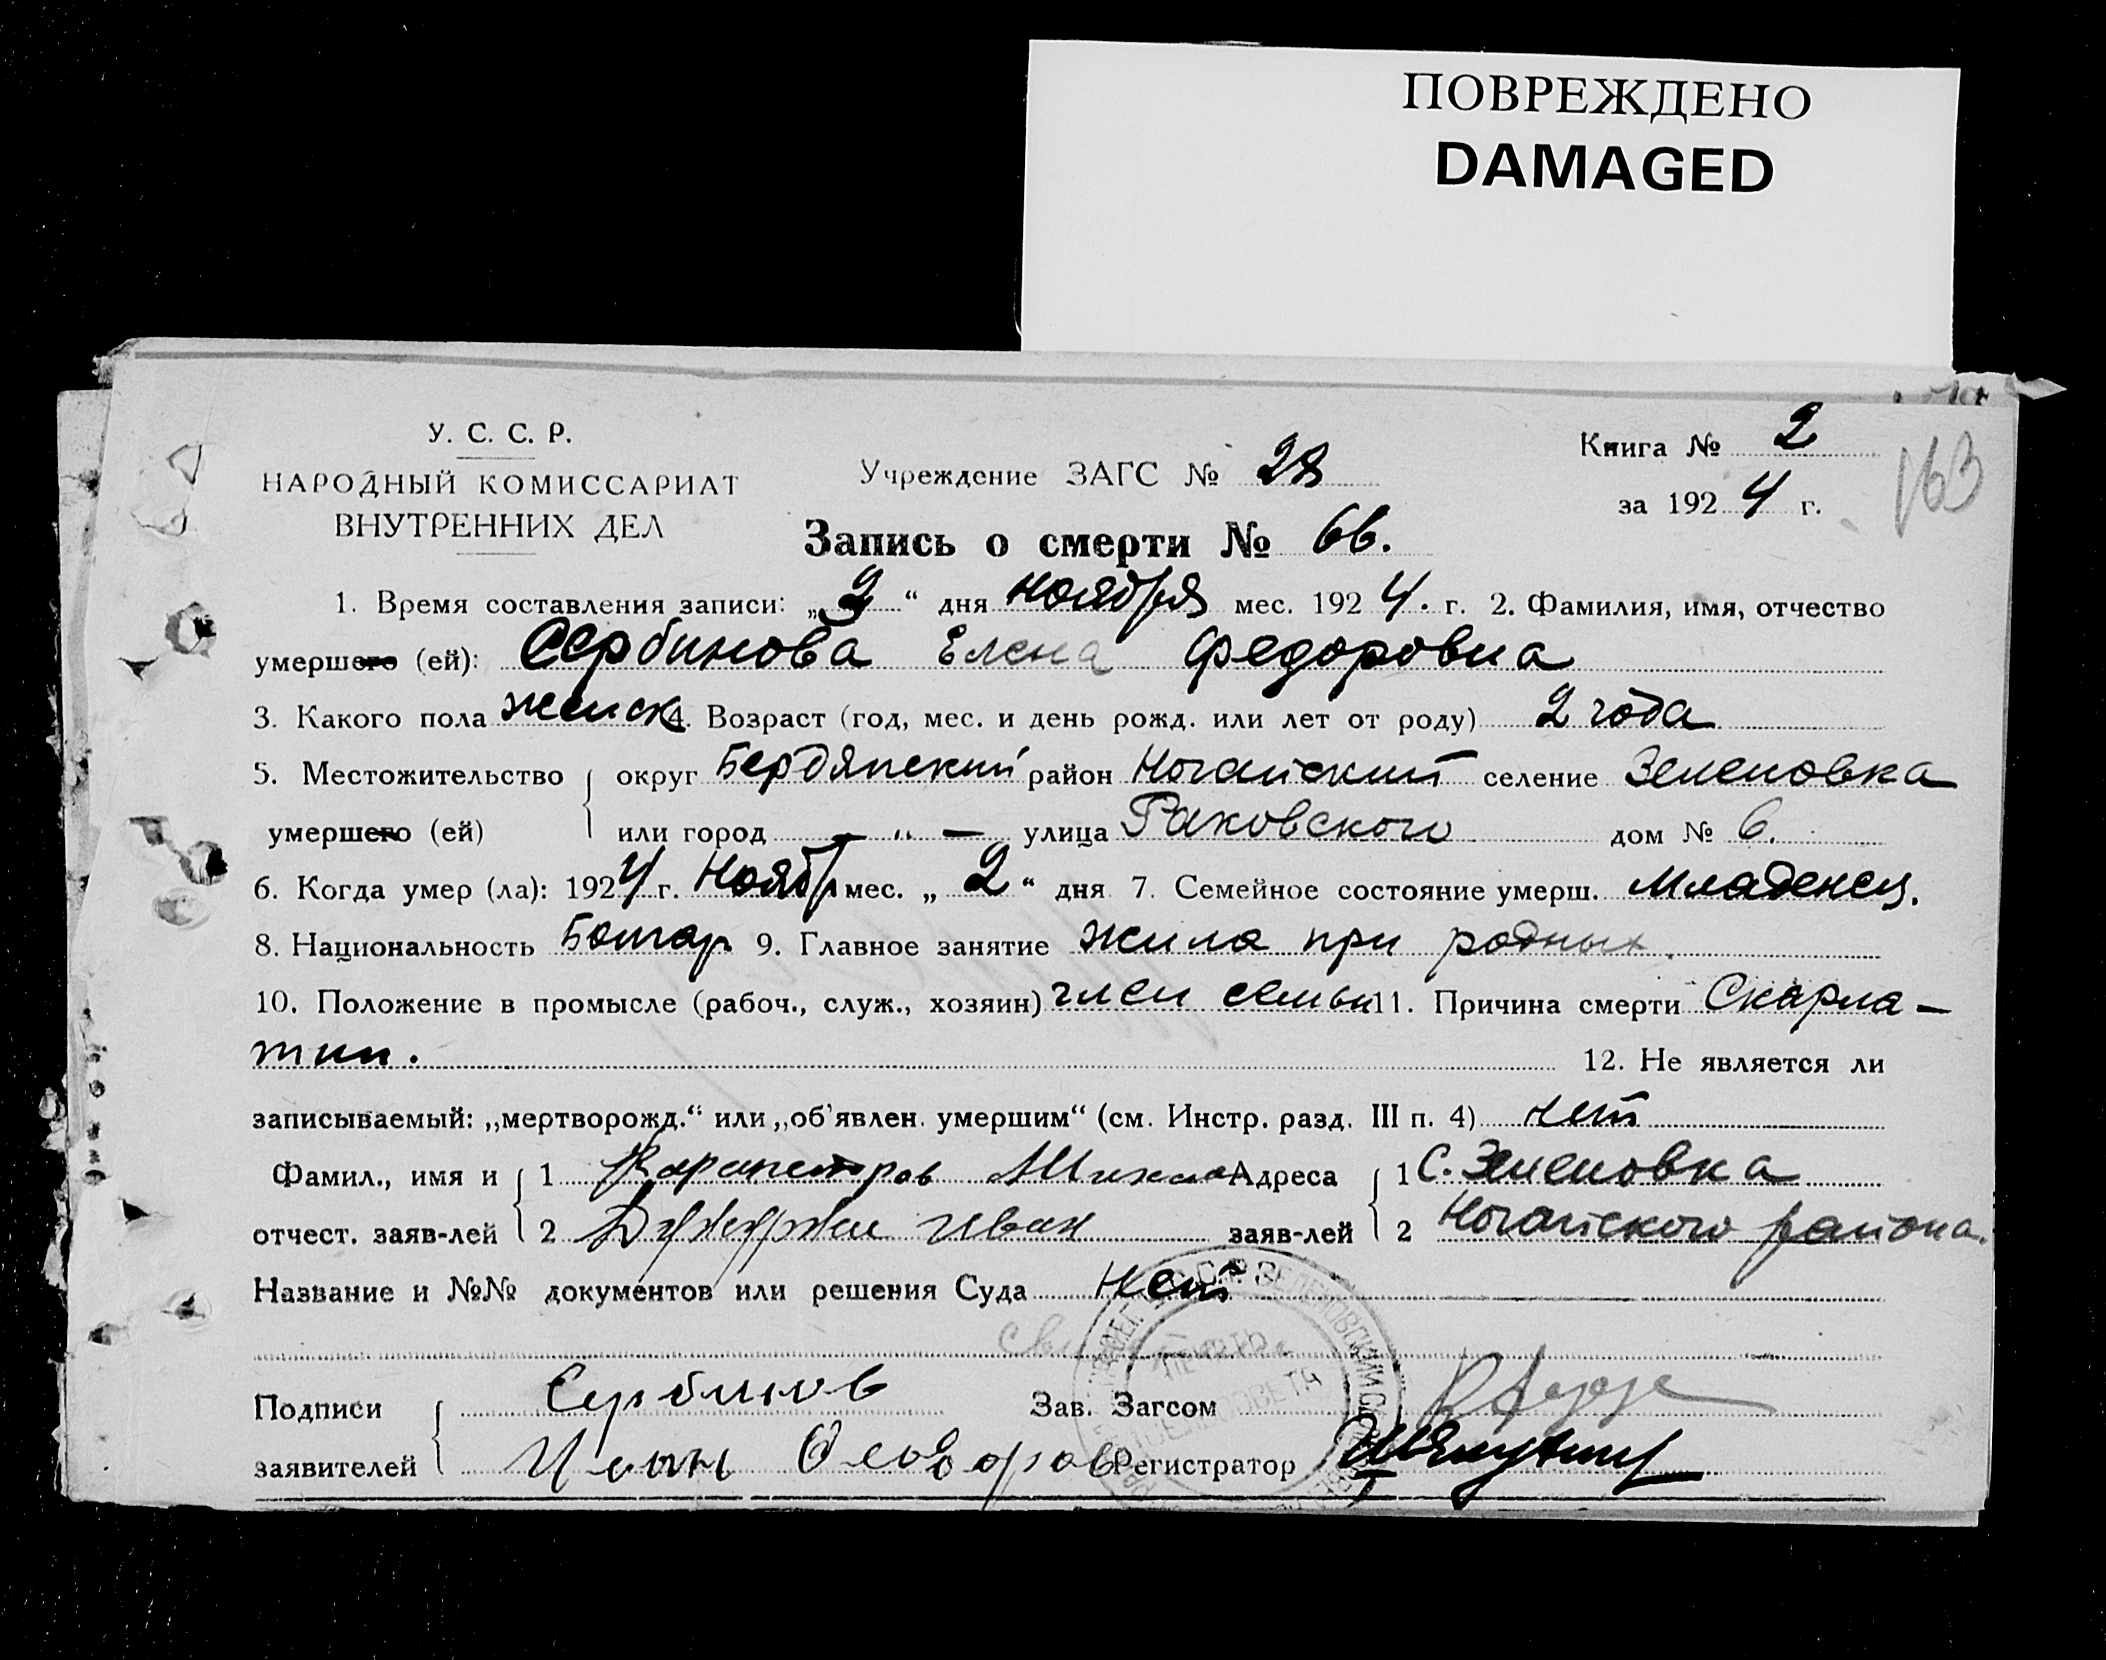 ПОВРЕЖДЕНО
DAMAGED
У. С. С. Р.
НАРОДНЫЙ КОМИССАРИАТ
ВНУТРЕННИХ ДЕЛ
Учреждение ЗАГС № 28
Книга № 2
за 1924 г.
163
Запись о смерти № 66.
1. Время составления записи: „2“ дня ноября мес. 1924. г. 2. Фамилия, имя, отчество
умершего (ей): Сербинова Елена Федоровна
3. Какого пола женск 4. Возраст (год, мес. и день рожд. или лет от роду) 2 года
5. Местожительство округ Бердянский район Ногайский селение Зеленовка
умершего (ей) или город — „ — улица Раковского дом № 6.
6. Когда умер (ла): 1924 г. Ноябр мес. „2“ дня 7. Семейное состояние умерш. Младенец.
8. Национальность Болгар. 9. Главное занятие жила при родных.
10. Положение в промысле (рабоч., служ., хозяин) член семьи 11. Причина смерти Скарла-
тин. 12. Не является ли
записываемый: „мертворожд.“ или „об'явлен. умершим“ (см. Инстр. разд. III п. 4) нет
Фамил., имя и 1 Адреса 1 С. Зеленовка
отчест. заяв-лей 2 Иван заяв-лей 2 Ногайского района.
Название и №№ документов или решения Суда нет
Подписи Сербинов Зав. Загсом
заявителей Регистратор